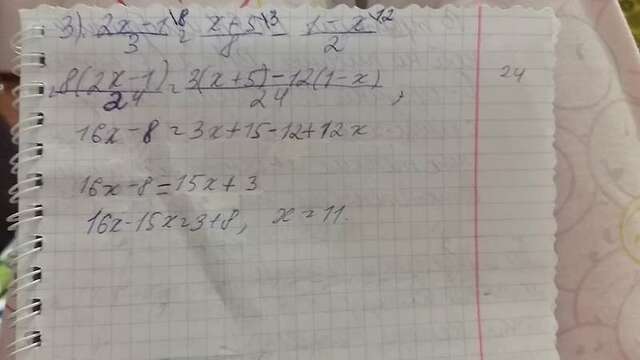 3) (2x-1)/3 \8 = (x+5)/8 \3 - (1-x)/2 \12
(8(2x-1))/24 = (3(x+5)-12(1-x))/24 ; 24
16x-8=3x+15-12+12x
16x-8=15x+3
16x-15x=3+8, x=11.